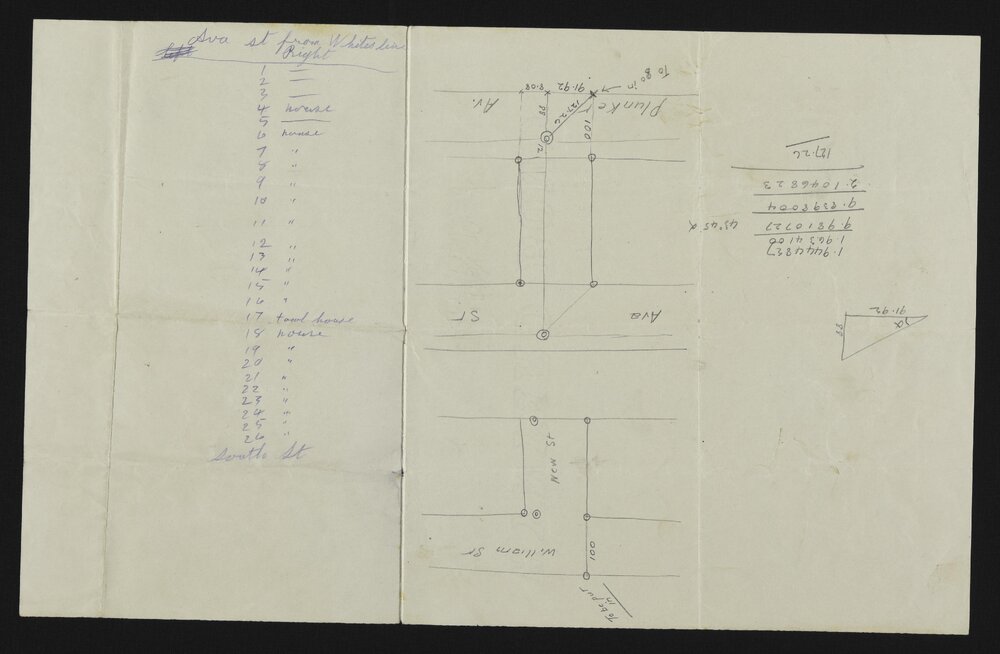 Ava st from Whites line
left Right
1 —
2 —
3 —
4 house
5 —
6 house
7 "
8 "
9 "
10 "
11 "
12 "
13 "
14 "
15 "
16 "
17 fowl house
18 house
19 "
20 "
21 "
22 "
23 "
24 "
25 "
26 "
South St
To go in
8.08
91.92
Av.
Plunke
88
127.26
100
12
St
Ava
New St
William St
100
To be put
in
91.92
α
88
1.9444827
1.9634100
9.9810727 43° 45' α
9.8398004
2.1046823
127.26